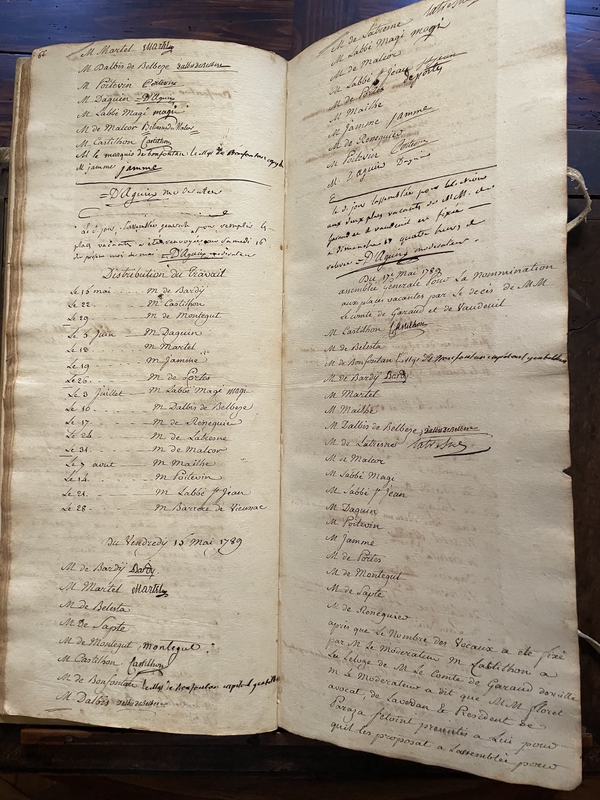 66
M Martel Martel
M Dalbis de Belbeze dalbisdebelbeze
M Poitevin Poitevin
M Daguin =D'Aguin
M Labbé Magi magi
M de Malcor Belmondemalcor
M Castilhon Castilhon
M le marquis de bonfontan, le Mqs de Bonfontan
M jamme jamme
=D'Aguin moderateur
plus vacantes
=D'Aguin moderateur
Distribution du travail
Le 15 mai M de Bardy
Le 22 M Castilhon
Le 29 M de Montegut
Le 5 Juin M Daguin
Le 18 M Martel
Le 19 M Jamme
Le 26 M de Portes
Le 3 Juillet M Labbé Magi magi
Le 10 M Dalbis de Belbeze
Le 17 M de Reneguier
Le 24 M de Latresne
Le 31 M de Malcor
Le 7 aout M Mailhe
Le 14 M Poitevin
Le 21 M Labbé St Jean
Le 28 M Barrere de Vieuzac
Du Vendredy 15 Mai 1789
M de Bardy Bardy
M Martel Martel
M de Belesta
M de Sapte
M de Montegut montegut
M Castilhon Castilhon
M de Bonfontan le Mqs de Bonfontan capitoul gentilhomme
M Dalbis dalbisdebelbeze
M de Latresne latresne
M Labbé Magi magi
M de Malcor
M Labbé St Jean St jean
M de Portes deportes
M Mailhe
M Jamme jamme
M de Reneguier
M Poitevin Poitevin
M. D'aguin Daguin
le dit jour lassemblée pour les elections
aux deux places vacantes de MM. de
garaud et de vaudeuil est fixée
a dimanche 17 quatre heures de
=D'Aguin moderateur.
Du 17e Mai 1789
assemblée Generale Pour La Nommination
aux places vacantes par Le deces de MM
Le comte de Garaud et de Vaudeuil
M Castilhon Castilhon
M de Belesta
M de Bonfontan le Mqs de Bonfontan capitoul gentilhomme
M de Bardy Bardy
M Martel
M Mailhe
M Dalbis de Belbeze dalbisdebelbeze
M de Latresne latresne
M de Malcor
M Labbé Magi
M Labbé St Jean
M Daguin
M Poitevin
M Jamme
M de Portes
M de Montegut
M de Sapte
M de Reneguier
après que Le Nombre des Vocaux a eté fixé
par M Le Moderateur M Castilhon a
Le Comte de Garaud
M Le Moderateur a dit que MM floret
avocat, de Lavedan & President de
Paraza setoint presentés a Lui pour
quil les proposat a Lassemblée pour